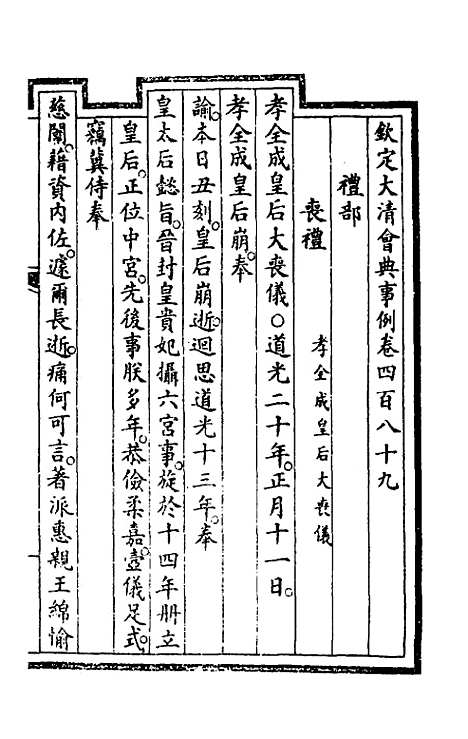 欽定大清會典事例卷四百八十九
禮部
喪禮 孝全成皇后大喪儀
孝全成皇后大喪儀○道光二十年。正月十一日。
孝全成皇后崩。奉
諭。本日丑刻。皇后崩逝。迴思道光十三年。奉
皇太后懿旨。晉封皇貴妃攝六宮事。旋於十四年冊立
皇后。正位中宮。先後事朕多年。恭儉柔嘉。壼儀足式。
竊冀侍奉
慈闈。藉資內佐。遽爾長逝。痛何可言。著派惠親王綿愉